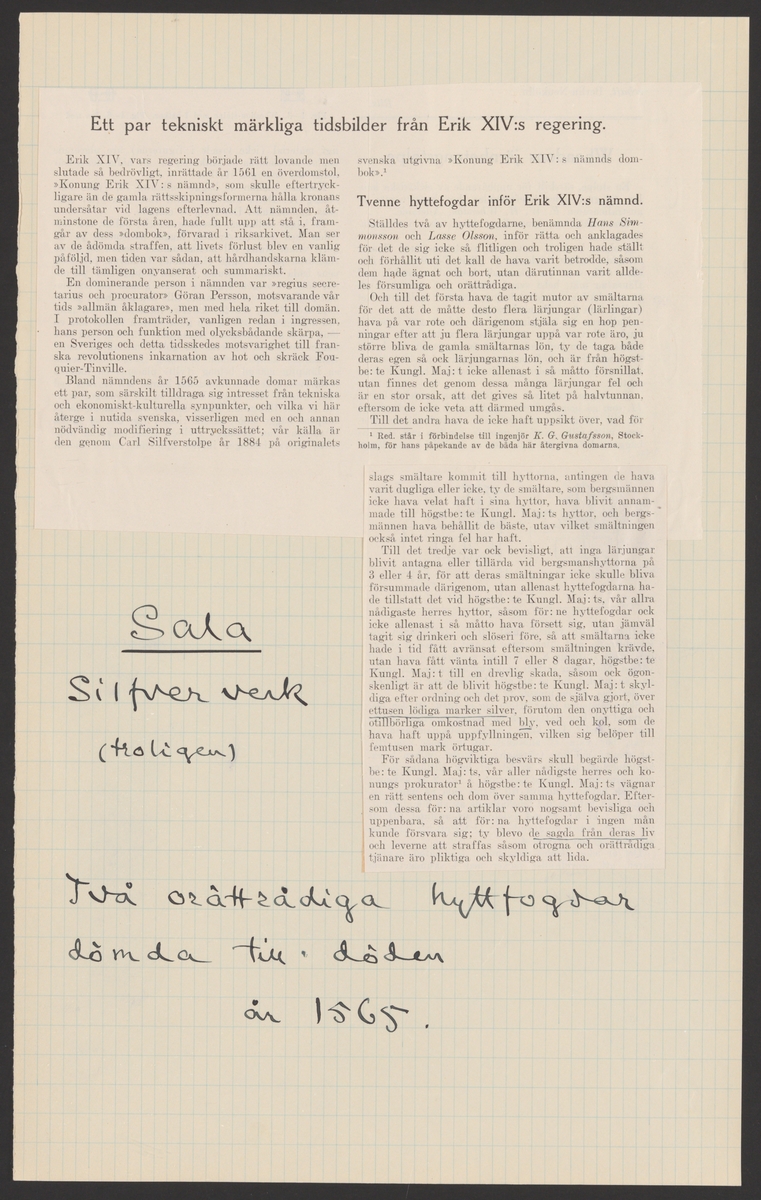 Ett par tekniskt märkliga tidsbilder från Erik XIV:s regering.
Erik XIV, vars regering började rätt lovande men
slutade så bedrövligt, inrättade år 1561 en överdomstol,
»Konung Erik XIV:s nämnd», som skulle eftertryck-
ligare än de gamla rättsskipningsformerna hålla kronans
undersåtar vid lagens efterlevnad. Att nämnden, åt-
minstone de första åren, hade fullt upp att stå i, fram-
går av dess »dombok», förvarad i riksarkivet. Man ser
av de ådömda straffen, att livets förlust blev en vanlig
påföljd, men tiden var sådan, att hårdhandskarna kläm-
de till tämligen onyanserat och summariskt.
En dominerande person i nämnden var »regius secre-
tarius och procurator» Göran Persson, motsvarande vår
tids »allmän åklagare», men med hela riket till domän.
I protokollen framträder, vanligen redan i ingressen,
hans person och funktion med olycksbådande skärpa, —
en Sveriges och detta tidsskedes motsvarighet till fran-
ska revolutionens inkarnation av hot och skräck Fou-
quier-Tinville.
Bland nämndens år 1565 avkunnade domar märkas
ett par, som särskilt tilldraga sig intresset från tekniska
och ekonomiskt-kulturella synpunkter, och vilka vi här
återge i nutida svenska, visserligen med en och annan
nödvändig modifiering i uttryckssättet; vår källa är
den genom Carl Silfverstolpe år 1884 på originalets
svenska utgivna »Konung Erik XIV:s nämnds dom-
bok».¹
Tvenne hyttefogdar inför Erik XIV:s nämnd.
Ställdes två av hyttefogdarne, benämnda Hans Sim-
monsson och Lasse Olsson, inför rätta och anklagades
för det de sig icke så flitligen och troligen hade ställt
och förhållit uti det kall de hava varit betrodde, såsom
dem hade ägnat och bort, utan därutinnan varit allde-
les försumliga och orättrådiga.
Och till det första hava de tagit mutor av smältarna
för det att de måtte desto flera lärjungar (lärlingar)
hava på var rote och därigenom stjäla sig en hop pen-
ningar efter att ju flera lärjungar uppå var rote äro, ju
större bliva de gamla smältarnas lön, ty de taga både
deras egen så ock lärjungarnas lön, och är från högst-
be:te Kungl. Maj:t icke allenast i så måtto försnillat,
utan finnes det genom dessa många lärjungar fel och
är en stor orsak, att det gives så litet på halvtunnan,
eftersom de icke veta att därmed umgås.
Till det andra hava de icke haft uppsikt över, vad för
¹ Red. står i förbindelse till ingenjör K. G. Gustafsson, Stock-
holm, för hans påpekande av de båda här återgivna domarna.
slags smältare kommit till hyttorna, antingen de hava
varit dugliga eller icke, ty de smältare, som bergsmännen
icke hava velat haft i sina hyttor, hava blivit annam-
made till högstbe:te Kungl. Maj:ts hyttor, och bergs-
männen hava behållit de bäste, utav vilket smältningen
också intet ringa fel har haft.
Till det tredje var ock bevisligt, att inga lärjungar
blivit antagna eller tillärda vid bergsmanshyttorna på
3 eller 4 år, för att deras smältningar icke skulle bliva
försummade därigenom, utan allenast hyttefogdarna ha-
de tillstatt det vid högstbe:te Kungl. Maj:ts, vår allra
nådigaste herres hyttor, såsom för:ne hyttefogdar ock
icke allenast i så måtto hava försett sig, utan jämväl
tagit sig drinkeri och slöseri före, så att smältarna icke
hade i tid fått avränsat eftersom smältningen krävde,
utan hava fått vänta intill 7 eller 8 dagar, högstbe:te
Kungl. Maj:t till en drevlig skada, såsom ock ögon-
skenligt är att de blivit högstbe:te Kungl. Maj:t skyl-
diga efter ordning och det prov, som de själva gjort, över
ettusen lödiga marker silver, förutom den onyttiga och
otillbörliga omkostnad med bly, ved och kol, som de
hava haft uppå uppfyllningen, vilken sig belöper till
femtusen mark örtugar.
För sådana högviktiga besvärs skull begärde högst-
be:te Kungl. Maj:ts, vår aller nådigste herres och ko-
nungs prokurator¹ å högstbe:te Kungl. Maj:ts vägnar
en rätt sentens och dom över samma hyttefogdar. Efter-
som dessa för:na artiklar voro nogsamt bevisliga och
uppenbara, så att för:na hyttefogdar i ingen mån
kunde försvara sig; ty blevo de sagda från deras liv
och leverne att straffas såsom otrogna och orättrådiga
tjänare äro pliktiga och skyldiga att lida.
Sala
Silfver verk
(troligen)
Två orättrådiga hyttfogdar
dömda till döden
år 1565.